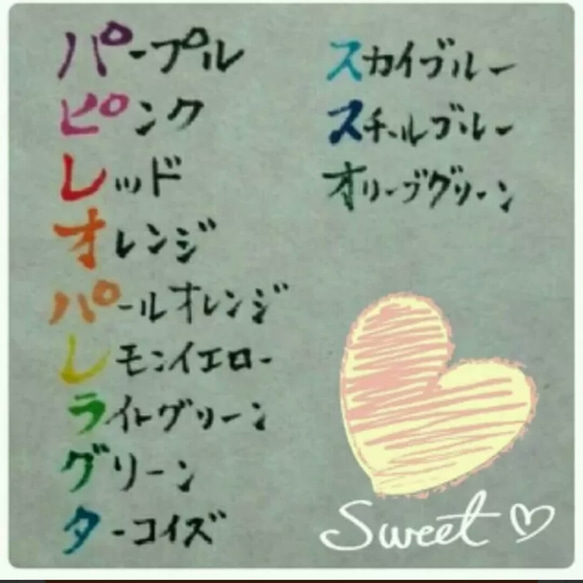 パープル
ピンク
レッド
オレンジ
パールオレンジ
レモンイエロー
ライトグリーン
グリーン
ターコイズ
スカイブルー
スチールブルー
オリーブグリーン
Sweet ♡